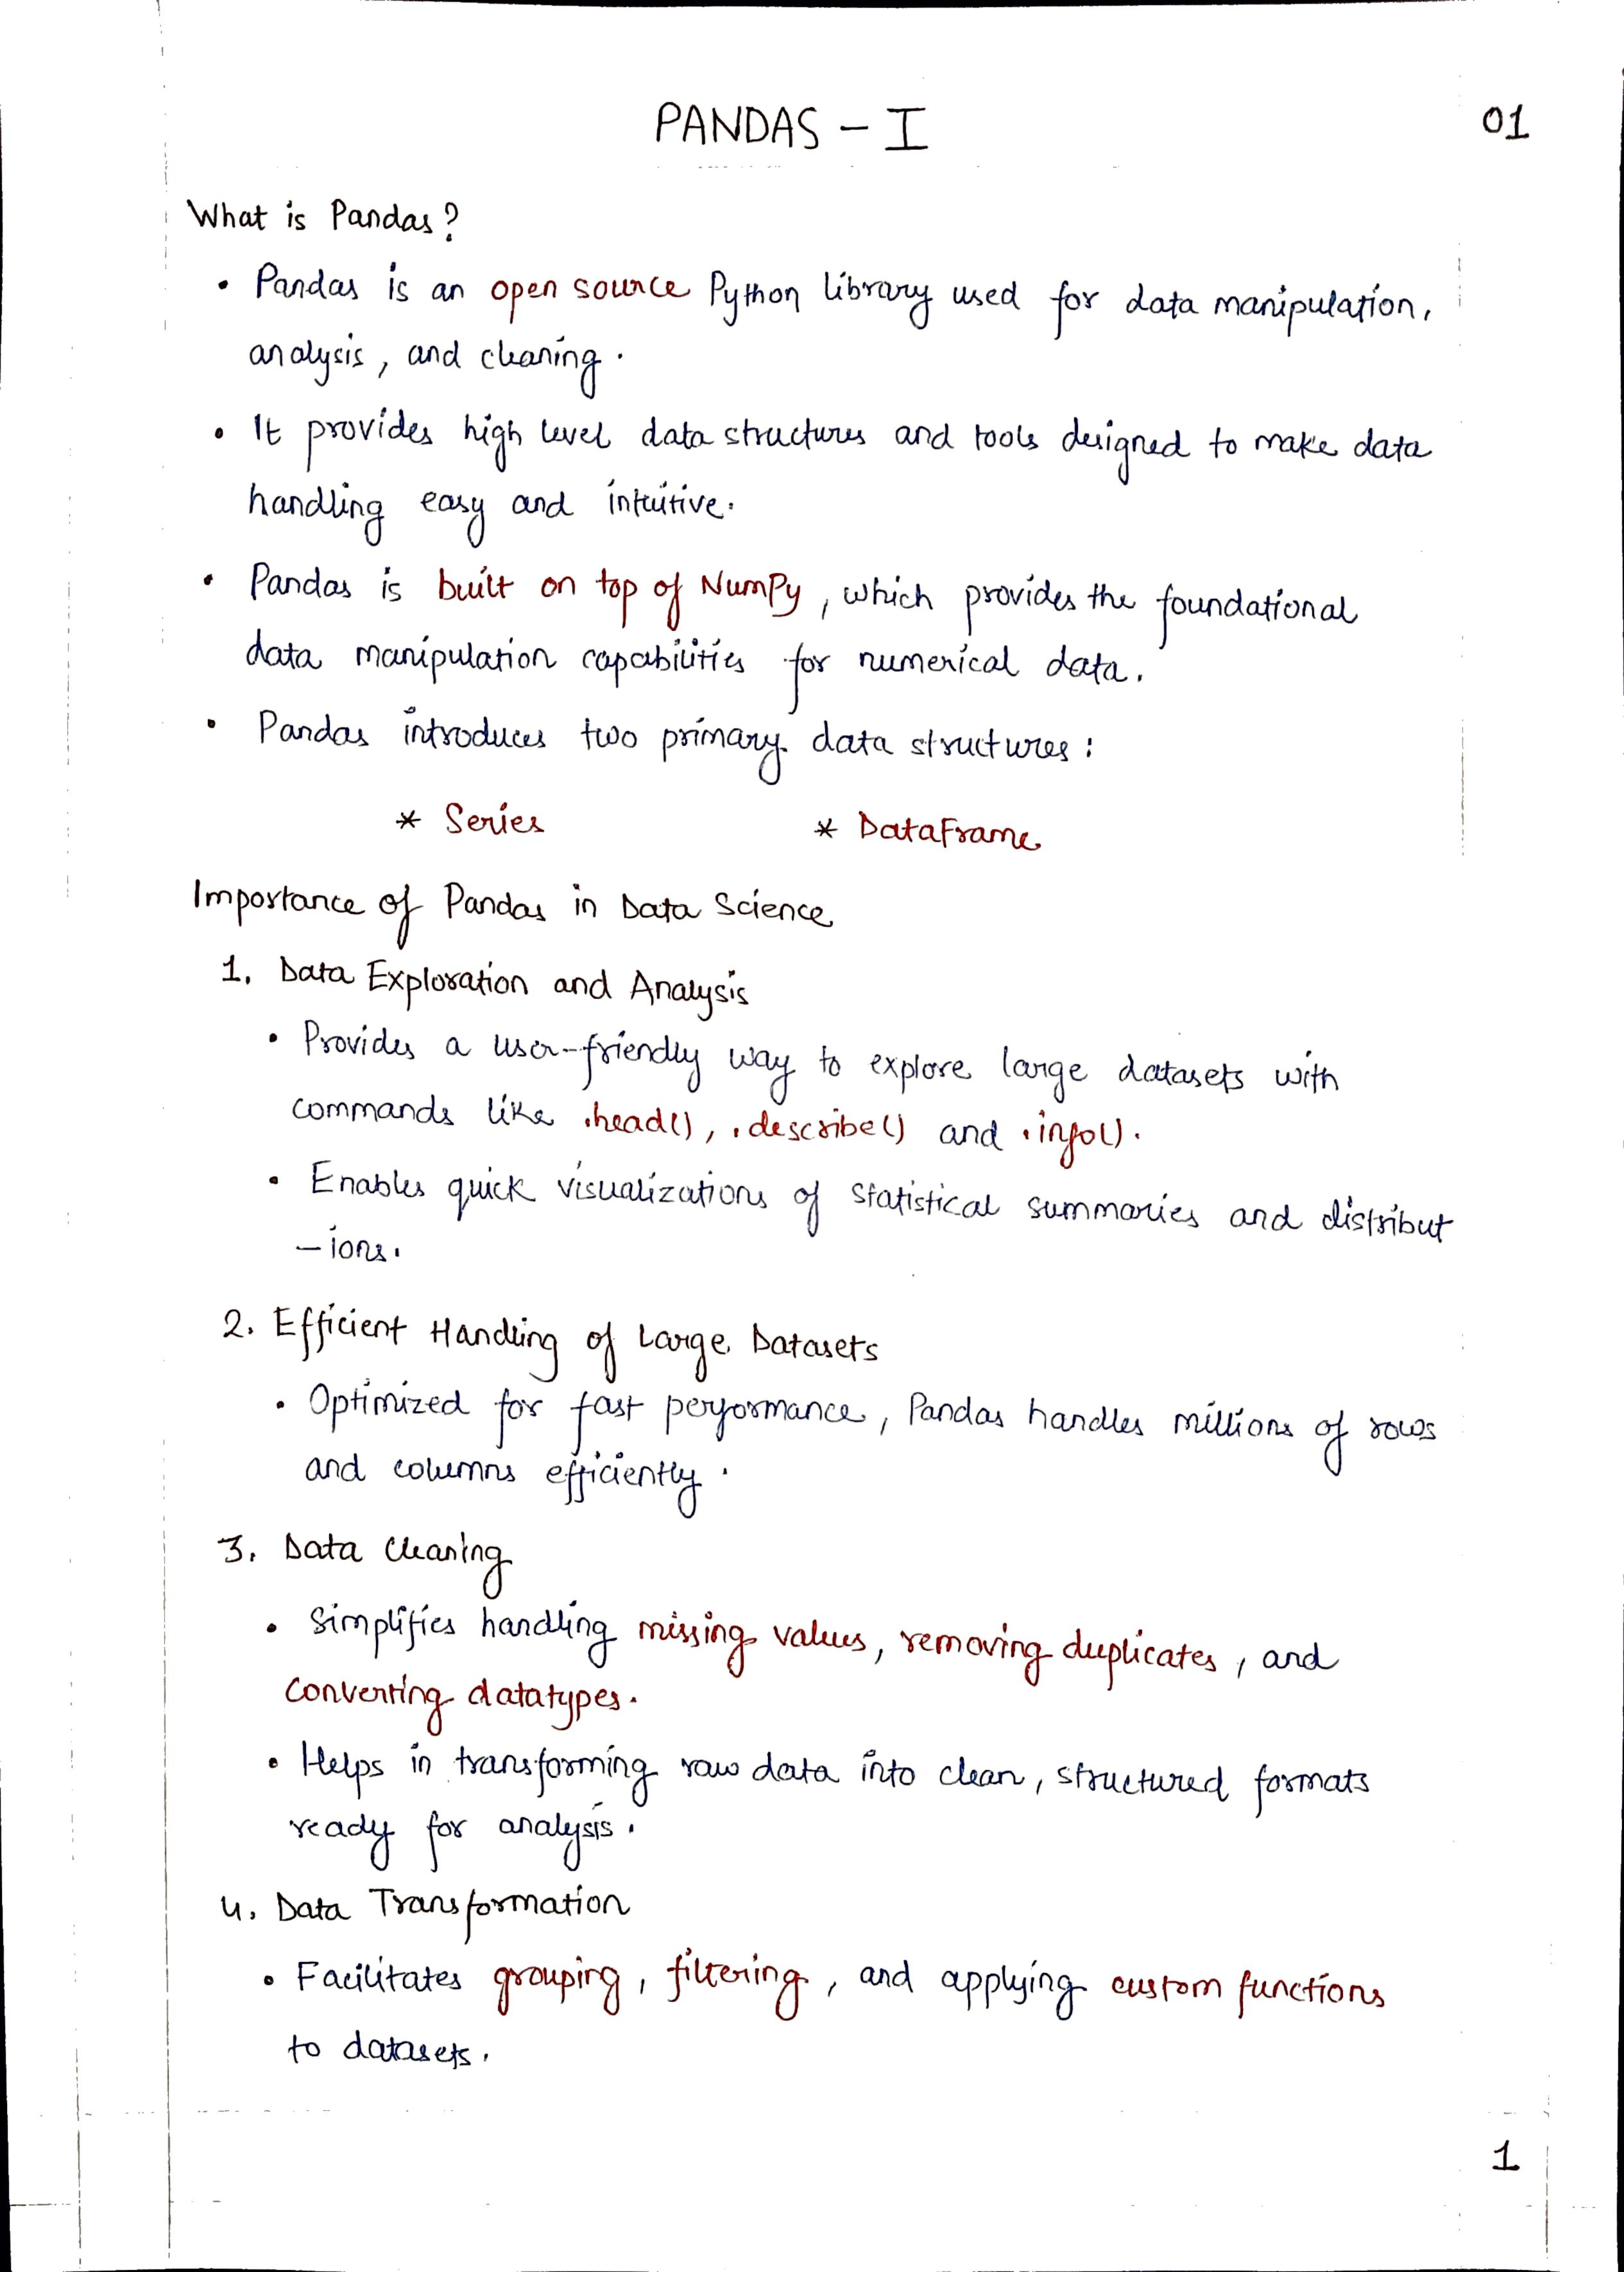 PANDAS - I
01
What is Pandas?
• Pandas is an open source Python library used for data manipulation,
analysis, and cleaning.
• It provides high level data structures and tools designed to make data
handling easy and intuitive.
• Pandas is built on top of NumPy, which provides the foundational
data manipulation capabilities for numerical data.
• Pandas introduces two primary data structures:
* Series * DataFrame
Importance of Pandas in Data Science
1. Data Exploration and Analysis
• Provides a user-friendly way to explore large datasets with
commands like .head(), .describe() and .info().
• Enables quick visualizations of statistical summaries and distribut
-ions.
2. Efficient Handling of Large Datasets
• Optimized for fast performance, Pandas handles millions of rows
and columns efficiently.
3. Data Cleaning
• Simplifies handling missing values, removing duplicates, and
converting datatypes.
• Helps in transforming raw data into clean, structured formats
ready for analysis.
4. Data Transformation
• Facilitates grouping, filtering, and applying custom functions
to datasets.
1